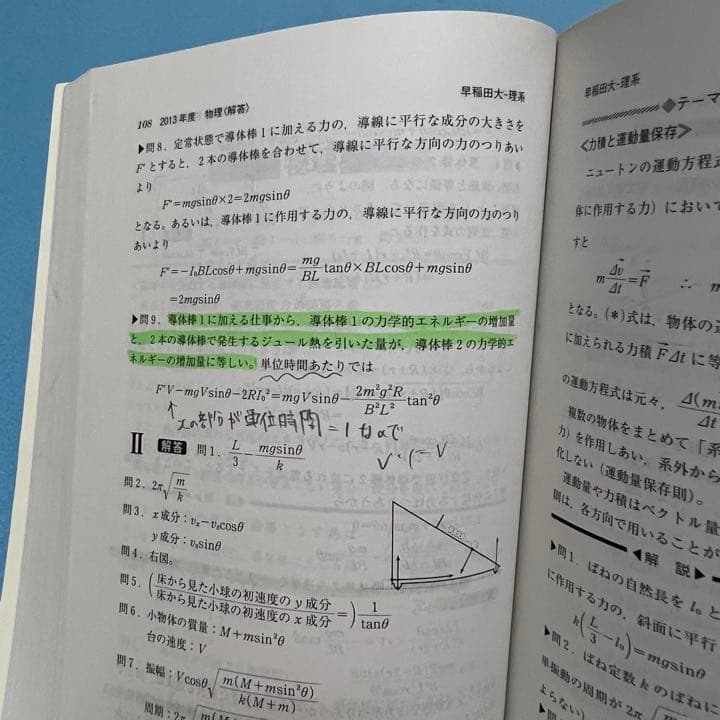 108 2013年度 物理〈解答〉
早稲田大-理系
▶問8. 定常状態で導体棒1に加える力の,導線に平行な成分の大きさを
F'とすると,2本の導体棒を合わせて,導線に平行な方向の力のつりあい
より
F'=mgsinθ×2=2mgsinθ
となる。あるいは,導体棒1に作用する力の,導線に平行な方向の力のつり
あいより
F'=−I₀BLcosθ+mgsinθ=mg/BL tanθ×BLcosθ+mgsinθ
=2mgsinθ
▶問9. 導体棒1に加える仕事から,導体棒1の力学的エネルギーの増加量
と,2本の導体棒で発生するジュール熱を引いた量が,導体棒2の力学的エ
ネルギーの増加量に等しい。単位時間あたりでは
F'V−mgVsinθ−2RI₀²=mgVsinθ−2m²g²R/B²L² tan²θ
↑xの部分が単位時間=1なので
V・1=V
Ⅱ 解答 問1. L/3−mgsinθ/k
問2. 2π√(m/k)
問3. x成分:vₓ−vₐcosθ
y成分:vₐsinθ
問4. 右図。
問5. (床から見た小球の初速度のy成分/床から見た小球の初速度のx成分=)1/tanθ
問6. 小物体の質量:M+msin²θ
台の速度:V
問7. 振幅:Vcosθ√(m(M+msin²θ)/k(M+m))
周期:2π
早稲田大-理系
◆テーマ
〈力積と運動量保存〉
ニュートンの運動方程式
体に作用する力)において
すと
m Δv/Δt=F ∴ m
となる。(*)式は,物体の運
に加えられる力積FΔtに等
の運動方程式は元々,Δ(m/Δt
複数の物体をまとめて「系
力)を作用しあい,系外から
化しない(運動量保存則)。
運動量や力積はベクトル量
則は,各方向で用いることが
◀解 説▶
▶問1. ばねの自然長をl₀と
に作用する力の,斜面に平行
k(L/3−l₀)=mgsinθ
▶問2. ばね定数kのばねに
単振動の周期が2π
よらない)